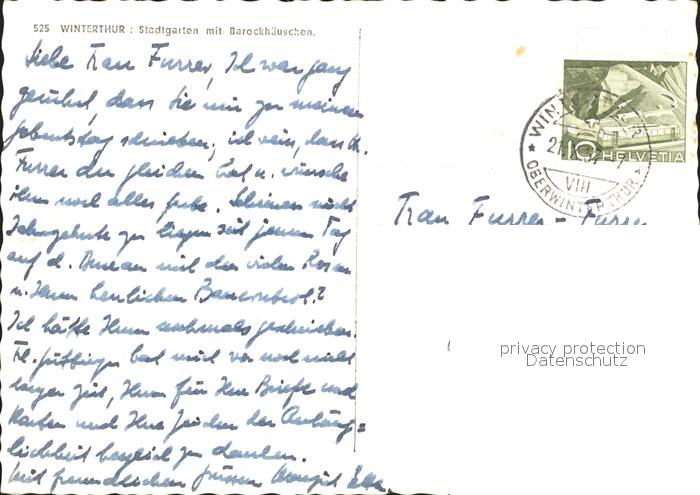 525 WINTERTHUR : Stadtgarten mit Barockhäuschen.
Liebe Frau Furrer, Ich war ganz
gerührt, dass Sie mir zu meinem
Geburtstag schrieben; ich weiss, dass Hr.
Furrer den gleichen hat u. wünsche
ihm noch alles Gute. Scheinen nicht
Jahrzehnte zu liegen seit jenem Tag
auf d. mit den vielen Rosen
u. Ihrem herrlichen Bauernbrot?
Ich hätte Ihnen nochmals geschrieben.
Frl. bat mich vor noch nicht
langer Zeit, Ihnen für Ihre Briefe und
Karten und Ihre Zeichen der Anhäng=
lichkeit herzlich zu danken.
Mit freundlichen Grüssen Margrit
WINTERTHUR
VIII
OBERWINTERTHUR
10 HELVETIA
Frau Furrer - Furrer
privacy protection
Datenschutz